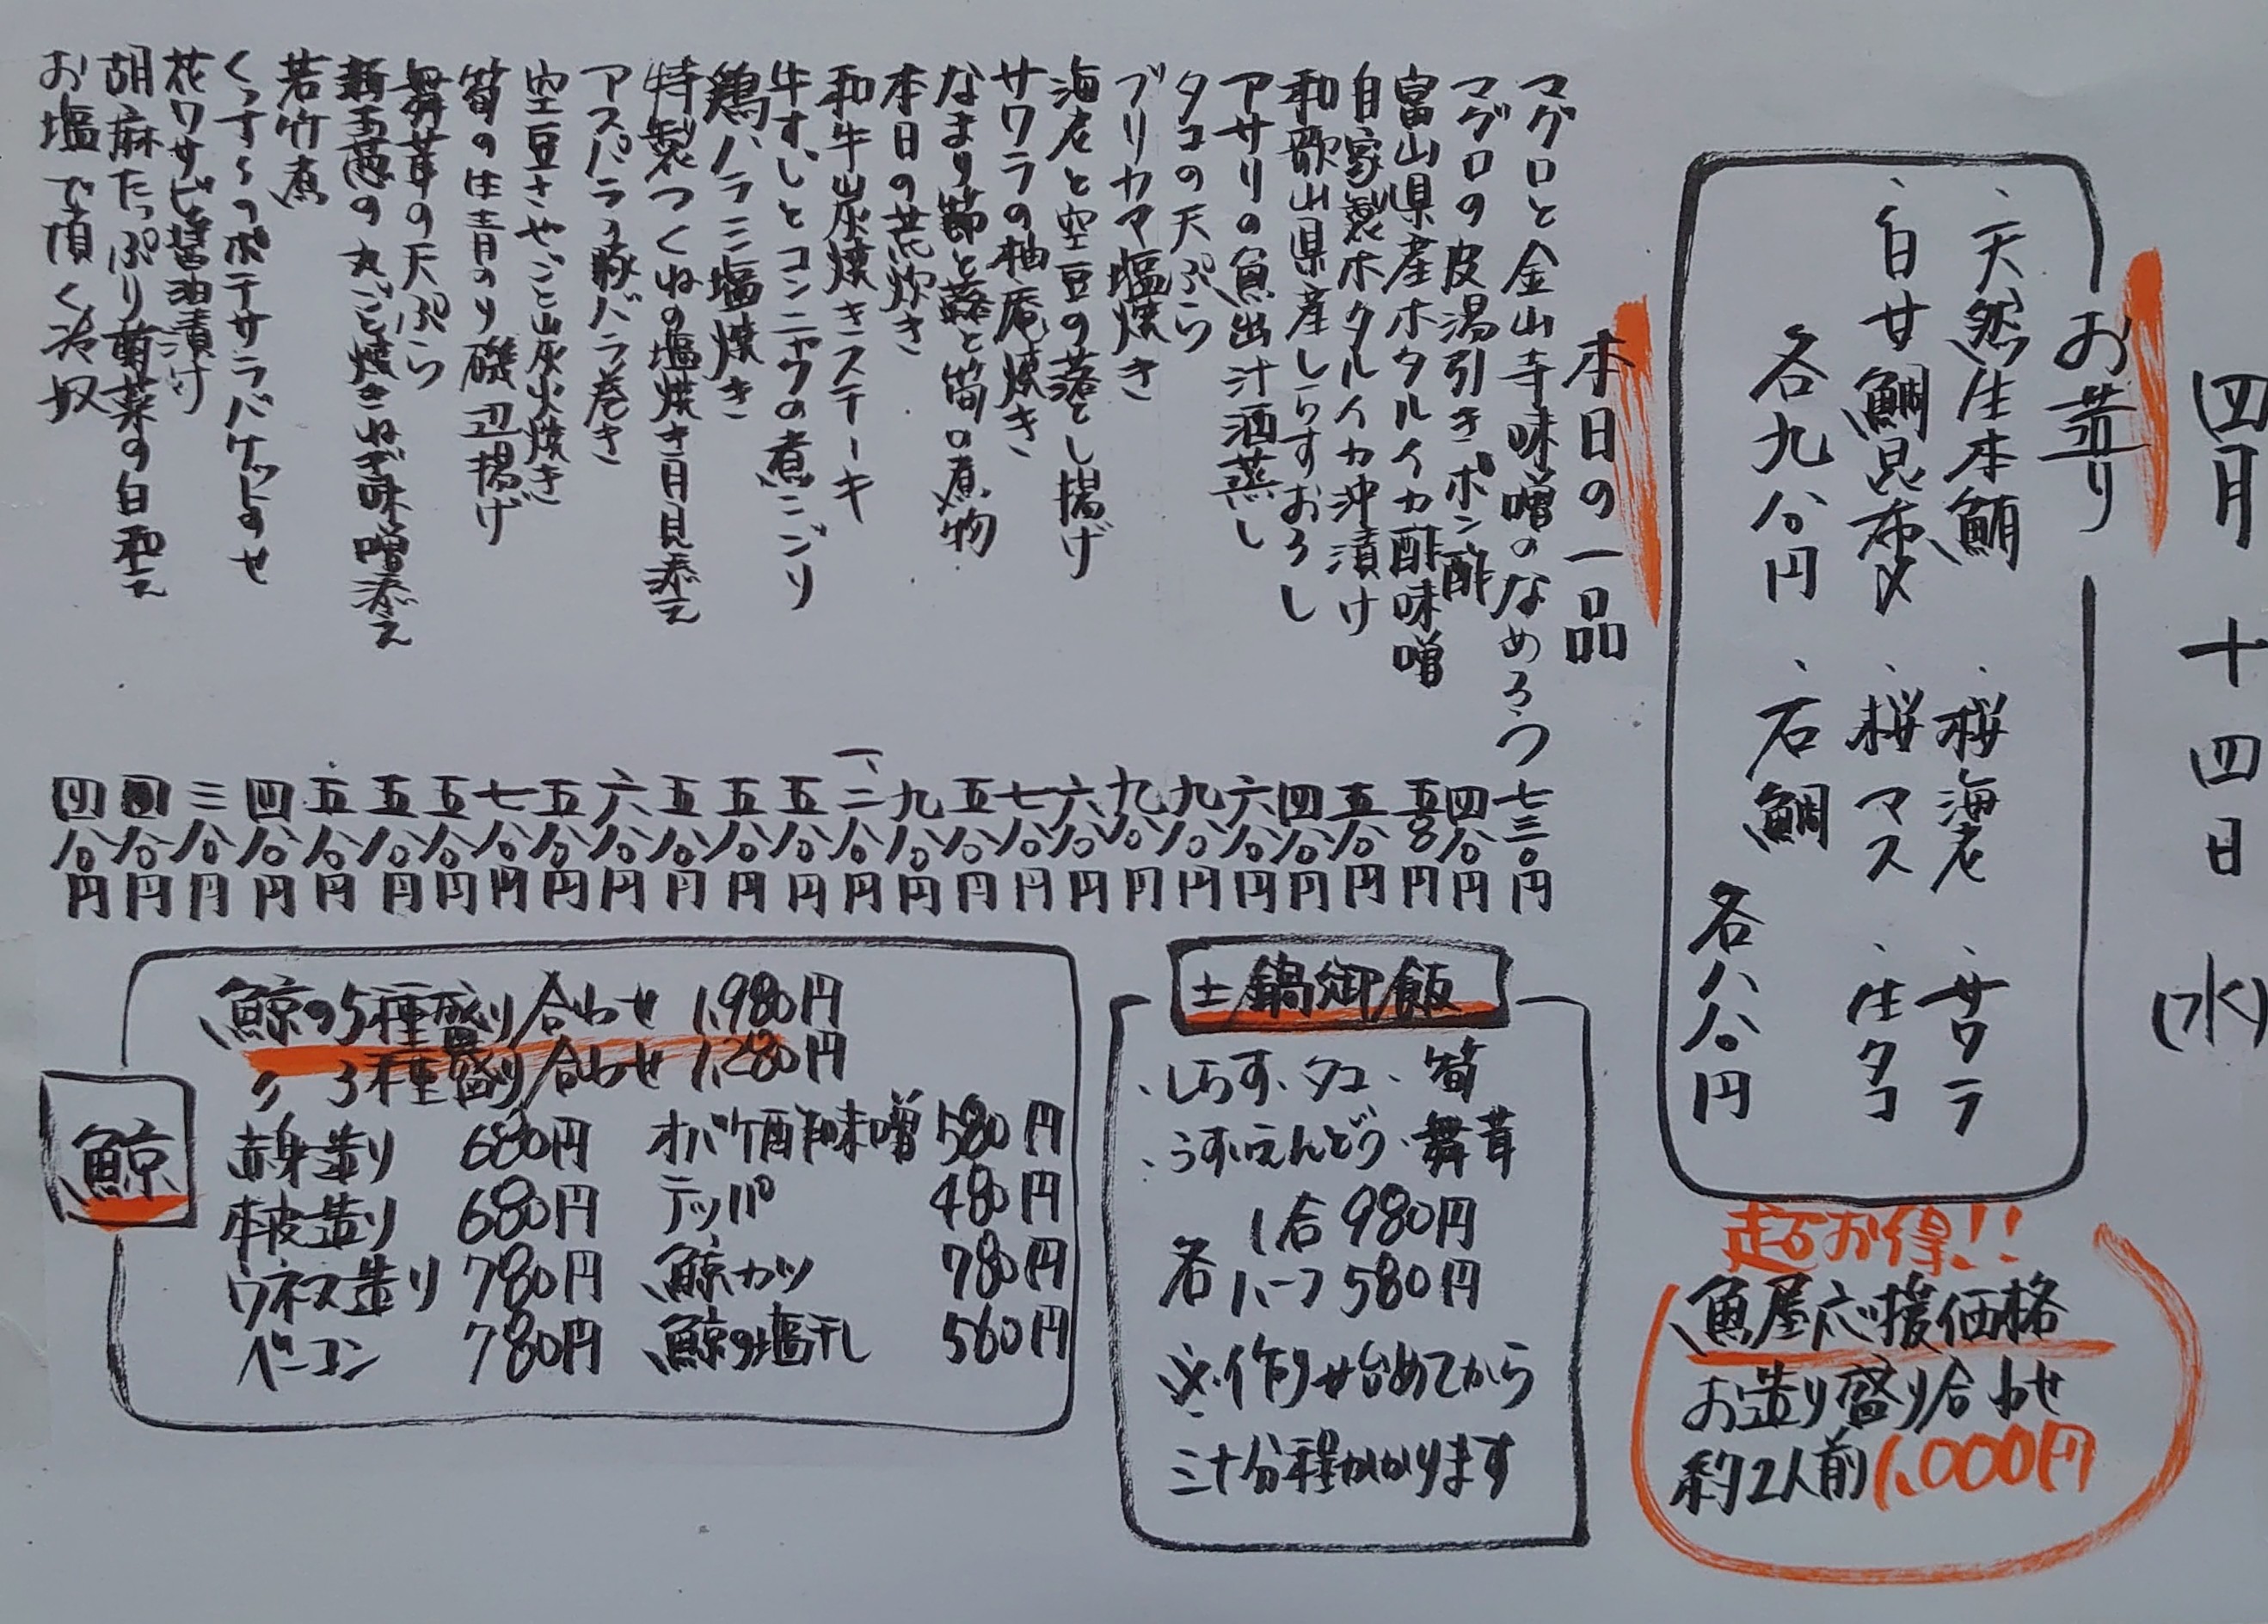 四月十四日(水)
お造り
・天然生本鮪 ・桜海老 ・サワラ
・白甘鯛昆布〆 ・桜マス ・生タコ
各九八〇円 ・石鯛 各八八〇円
本日の一品
マグロと金山寺味噌のなめろう 七三〇円
マグロの皮湯引きポン酢 四八〇円
富山県産ホタルイカ酢味噌 五八〇円
自家製ホタルイカ沖漬け 五八〇円
和歌山県産しらすおろし 四八〇円
アサリの魚出汁酒蒸し 六八〇円
タコの天ぷら 九八〇円
ブリカマ塩焼き 九八〇円
海老と空豆の落とし揚げ 六八〇円
サワラの柚庵焼き 七八〇円
なまり節と蕗と筍の煮物 五八〇円
本日の荒炊き 九八〇円
和牛炭焼きステーキ 一、二八〇円
牛すじとコンニャクの煮こごり 五八〇円
鶏ハラミ塩焼き 五八〇円
特製つくねの塩焼き月見添え 五八〇円
アスパラ豚バラ巻き 六八〇円
空豆さやごと炭火焼き 五八〇円
筍の生青のり磯辺揚げ 七八〇円
舞茸の天ぷら 五八〇円
新玉葱の丸ごと焼きねぎ味噌添え 五八〇円
若竹煮 五八〇円
くっすんのポテサラバケットのせ 四八〇円
花ワサビ醤油漬け 三八〇円
胡麻たっぷり菊菜の白和え 四八〇円
お塩で頂く冷奴 四八〇円
超お得!!
魚屋応援価格
お造り盛り合わせ
約2人前1,000円
土鍋御飯
・しらす・タコ・筍
・うすいえんどう・舞茸
各 1合 980円
ハーフ 580円
※作り始めてから
三十分程かかります
鯨
鯨の5種盛り合わせ 1,980円
〃 3種盛り合わせ 1,280円
赤身造り 680円 オバケ酢味噌 580円
本皮造り 680円 テッパ 480円
ウネス造り 780円 鯨カツ 780円
ベーコン 780円 鯨の塩干し 560円